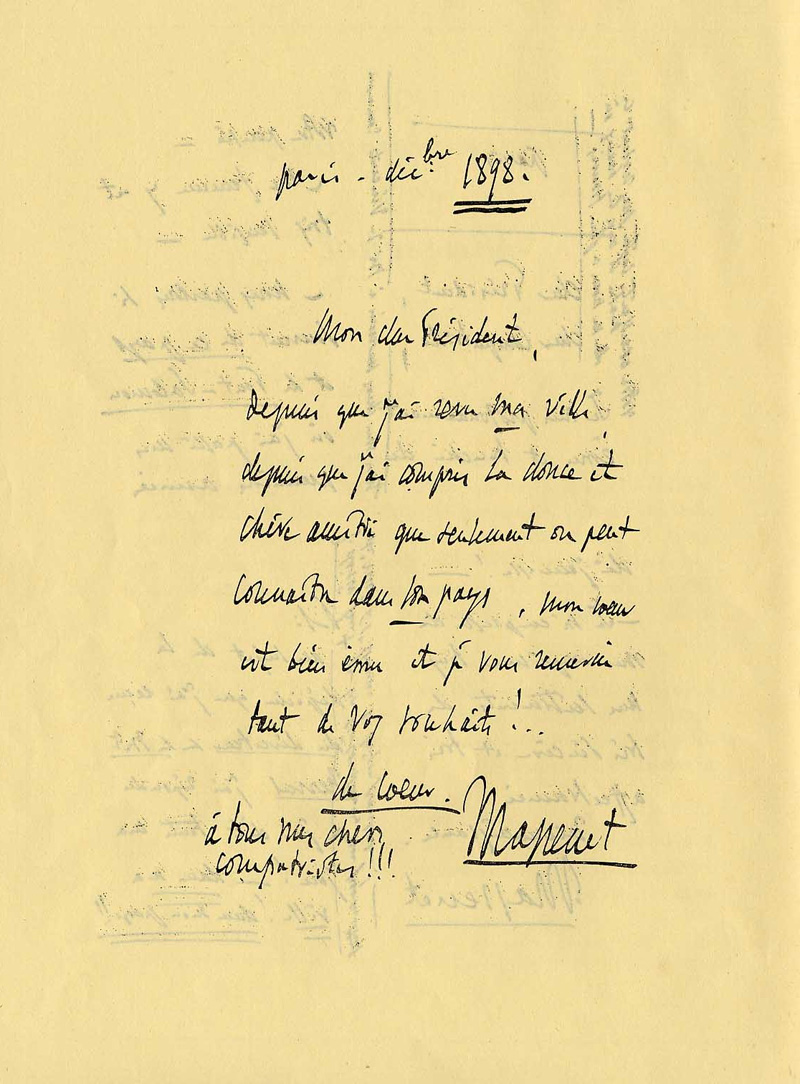 paris - déc.bre 1898.
Mon cher Président,
depuis que j'ai revu ma ville,
depuis que j'ai compris la douce et
chère amitié que seulement on peut
connaître dans son pays, mon cœur
est bien ému et je vous remercie
tant de vos souhaits !..
de cœur.
Massenet
à tous mes chers
compatriotes !!!